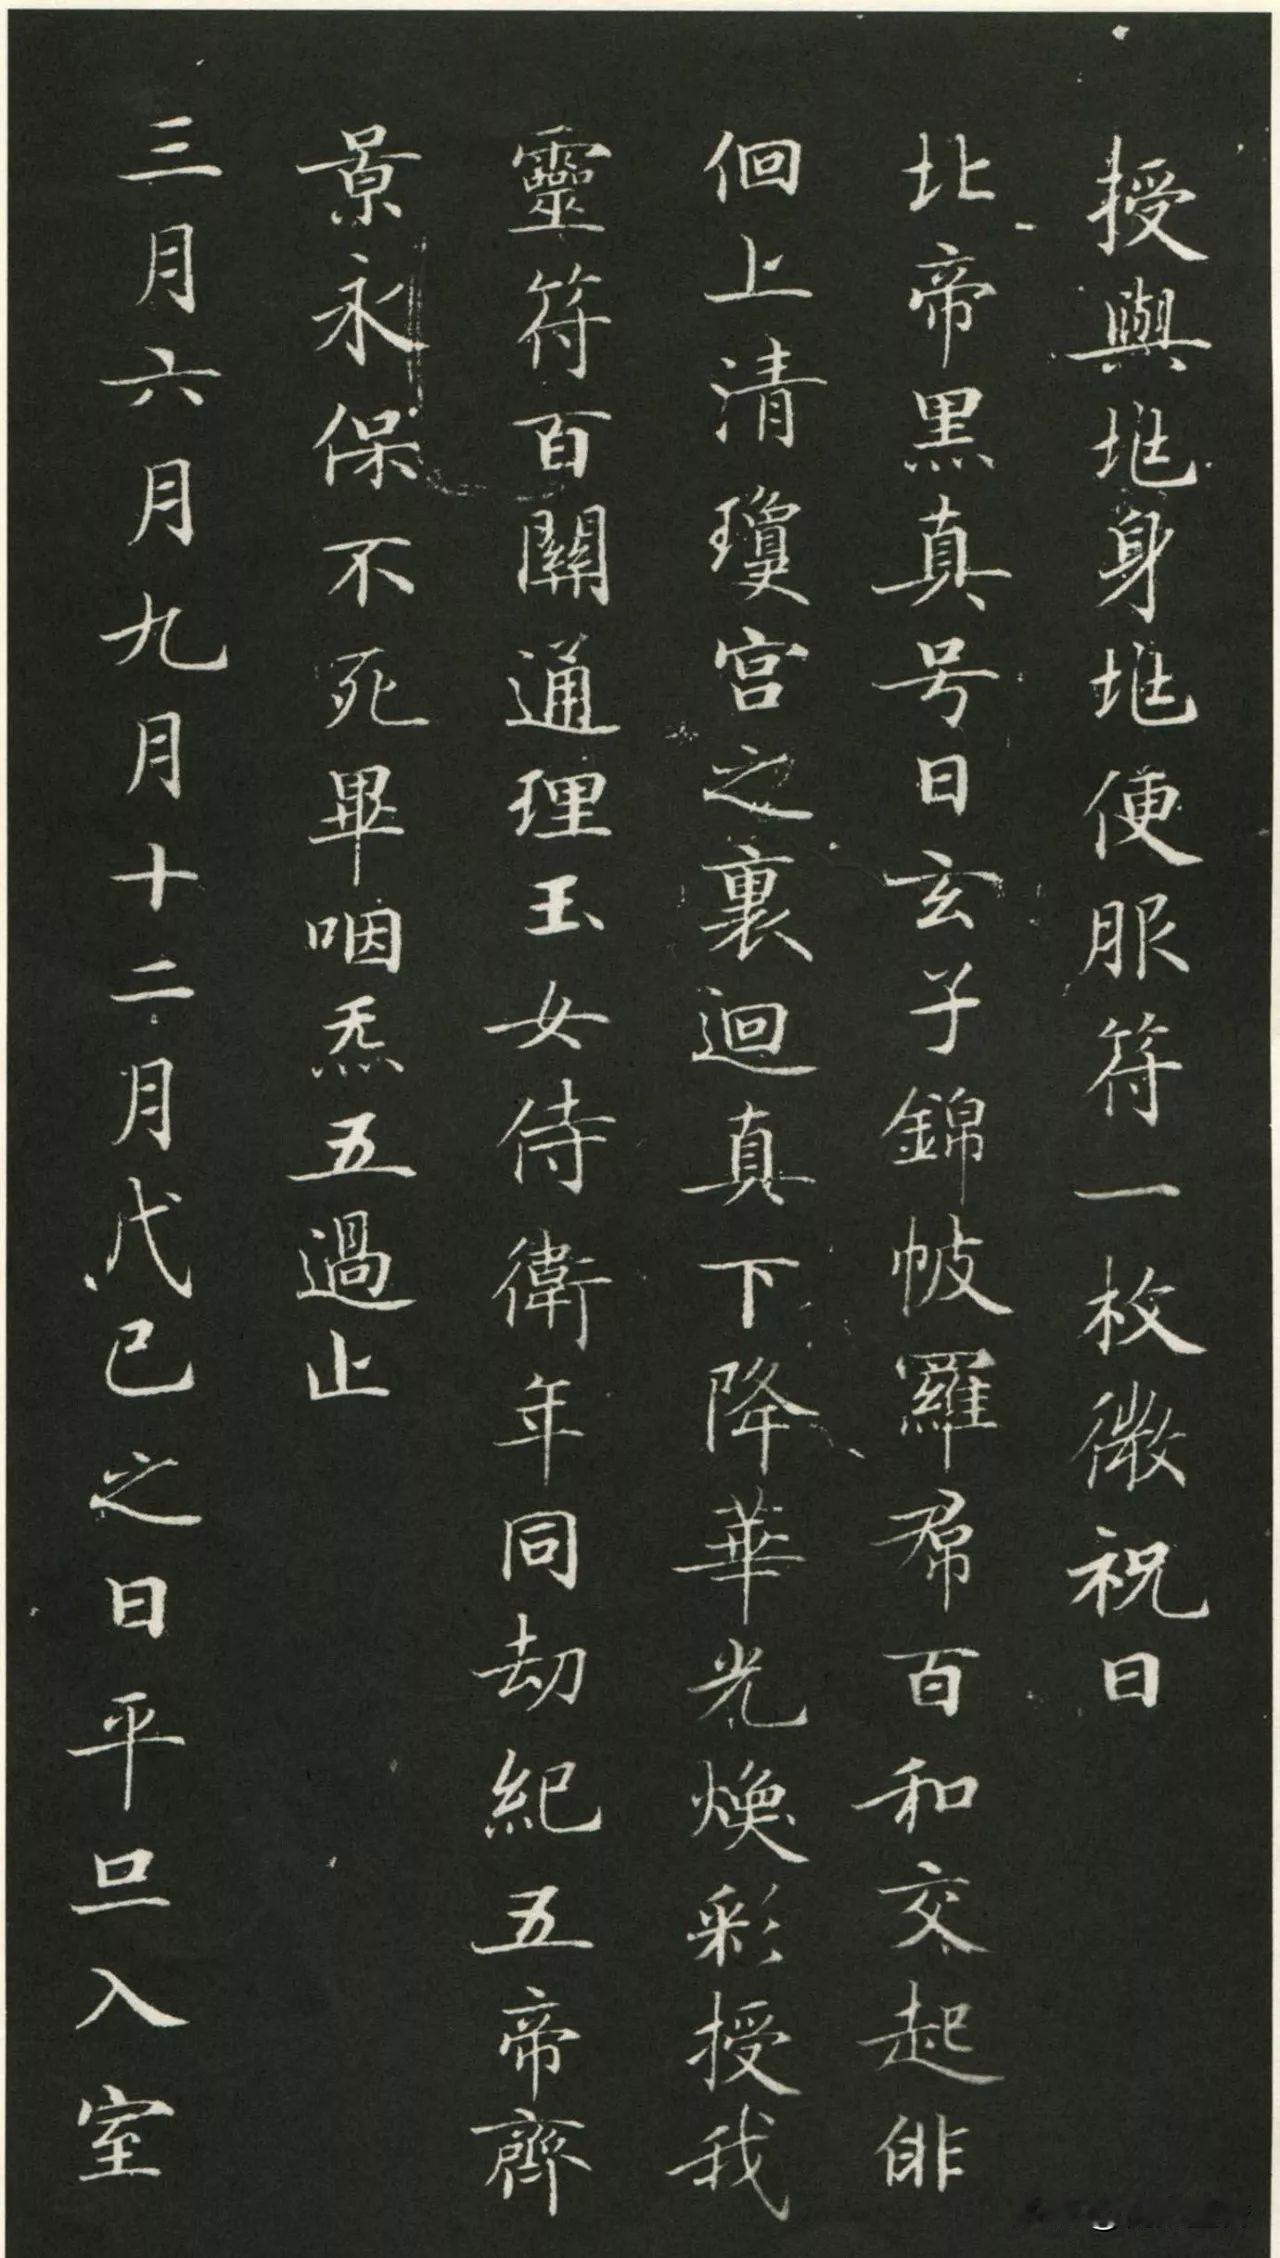 授與兆身兆便服符一枚微祝曰
北帝黑真号曰玄子錦帔羅帬百和交起俳
佪上清瓊宮之裏迴真下降華光煥彩授我
靈符百關通理玉女侍衛年同劫紀五帝齊
景永保不死畢咽炁五過止
三月六月九月十二月戊己之日平旦入室